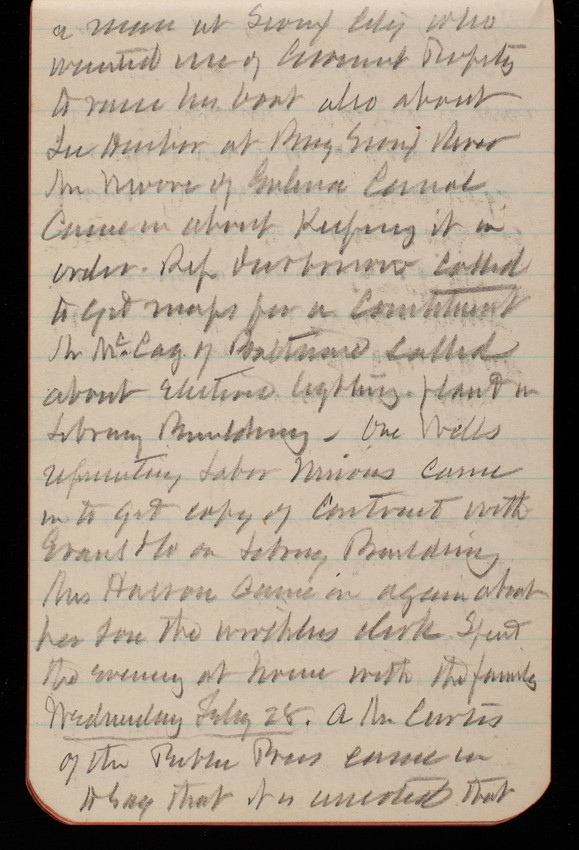 a man at Sioux City who
wanted use of Government Property
to raise his boat also about
Ice Harbor at Big Sioux River
Mr Moore of Galena Canal
Came in about Keeping it in
order. Rep called
to get maps for a Constituent
Mr McCay of Baltimore called
about Electric lighting plant in
Library Building - One Wells
representing Labor Unions came
in to get copy of Contract with
Evans & Co on Library Building
Mrs came in again about
her son the worthless clerk. Spent
the evening at home with the family
Wednesday Feby 28. A Mr Curtis
of the Public Press came in
to say that it is that